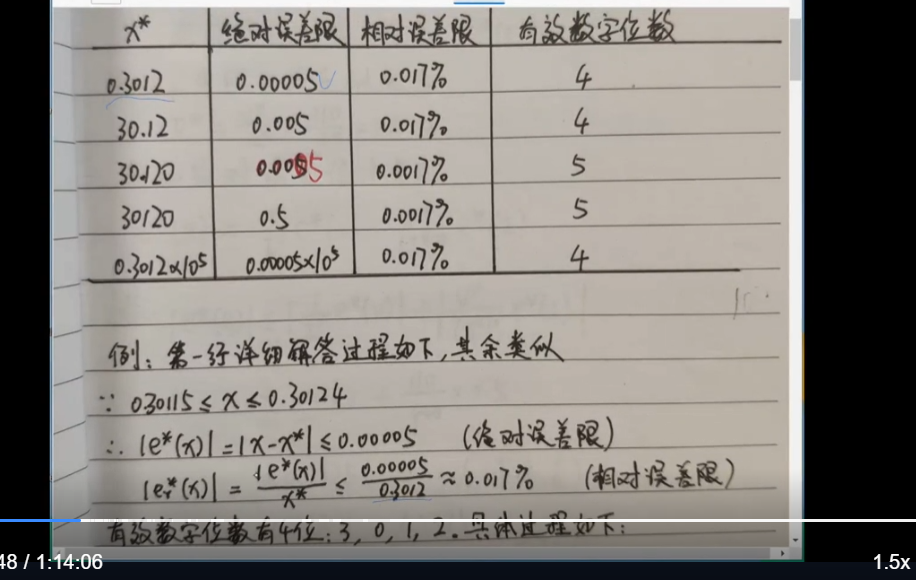 x* 绝对误差限 相对误差限 有效数字位数
0.3012 0.00005 0.017% 4
30.12 0.005 0.017% 4
30.120 0.0005 0.0017% 5
30120 0.5 0.0017% 5
0.3012×10⁵ 0.00005×10⁵ 0.017% 4
例:第一行详细解答过程如下,其余类似
∵ 0.30115 ≤ x ≤ 0.30124
∴ |e*(x)| = |x-x*| ≤ 0.00005 (绝对误差限)
|eᵣ*(x)| = |e*(x)|/x* ≤ 0.00005/0.3012 ≈ 0.017% (相对误差限)
有效数字位数有4位:3,0,1,2。具体过程如下:
48 / 1:14:06 1.5x